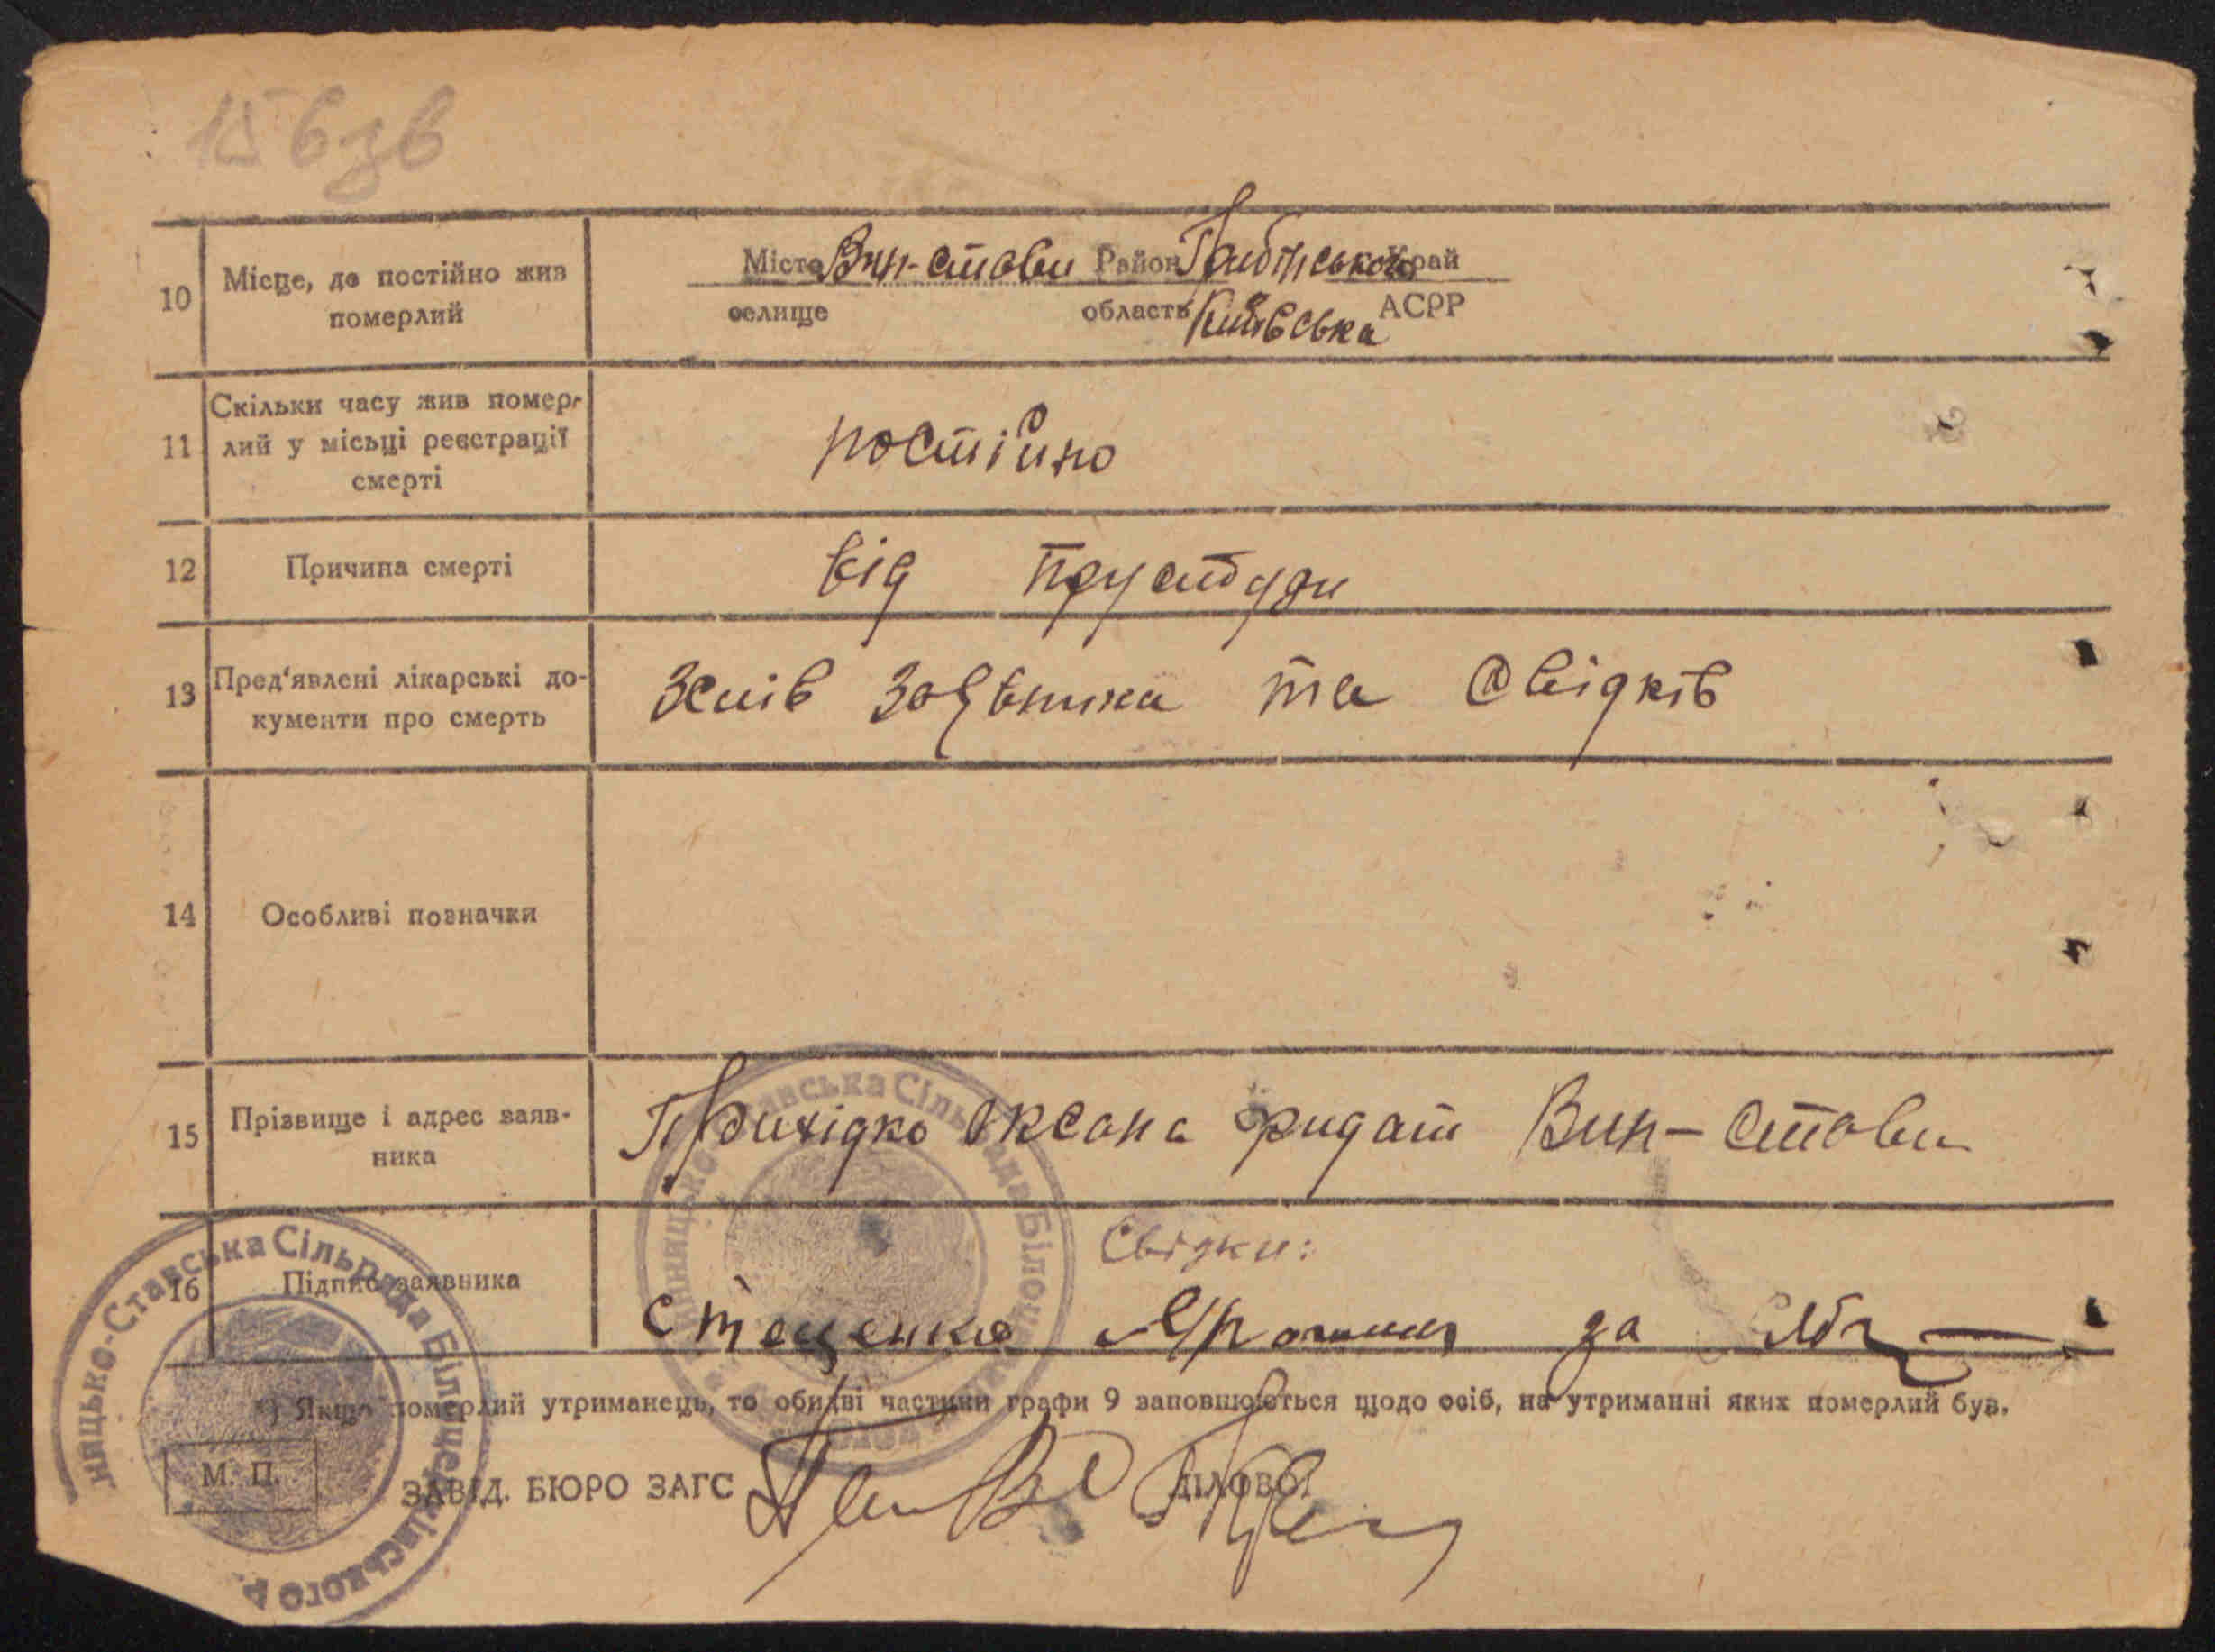 15 взв
10 Місце, де постійно жив
померлий
Місто Вин-Стави Район Гребінського Край
селище область Київська АСРР
11 Скільки часу жив помер-
лий у місьці реєстрації
смерті
постійно
12 Причина смерті
від простуди
13 Пред'явлені лікарські до-
кументи про смерть
Зслів заявника та свідків
14 Особливі позначки
15 Прізвище і адрес заяв-
ника
Прихідко Оксана Вин-Стави
16 Підпис заявника
Свідки:
Стеценко да
*) Якщо померлий утриманець, то обидві частини графи 9 заповнюються щодо осіб, на утриманні яких померлий був.
М. П.
ЗАВІД. БЮРО ЗАГС ДІЛОВОД
нницько-Ставська Сільрада Білоцерківського